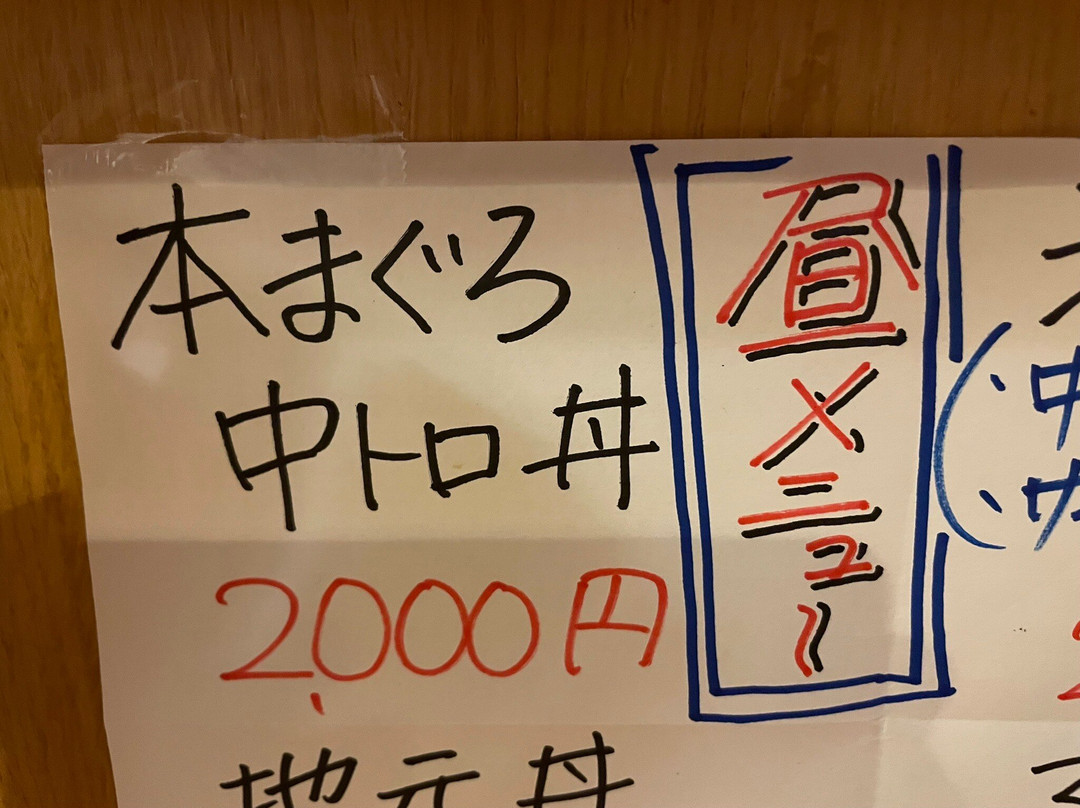 本まぐろ
中トロ丼
2,000円
地元丼
昼メニュー